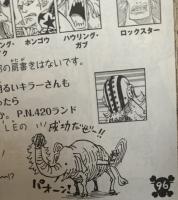 ング・
ク
ホンゴウ
ハウリング・
ガブ
ロックスター
の肩書きはないです。
かたが
明るいキラーさんも
ったら
か。P.N.420ランド
成功だぞー!!
パオーン!
96